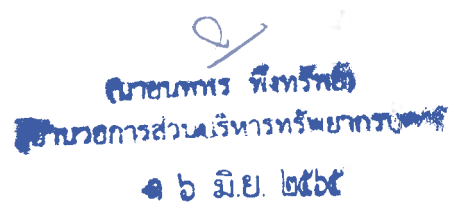 (นายนพพร พึ่งทรัพย์)
ผู้อำนวยการส่วนบริหารทรัพยากรบุคคล
๑ ๖ มิ.ย. ๒๕๖๕